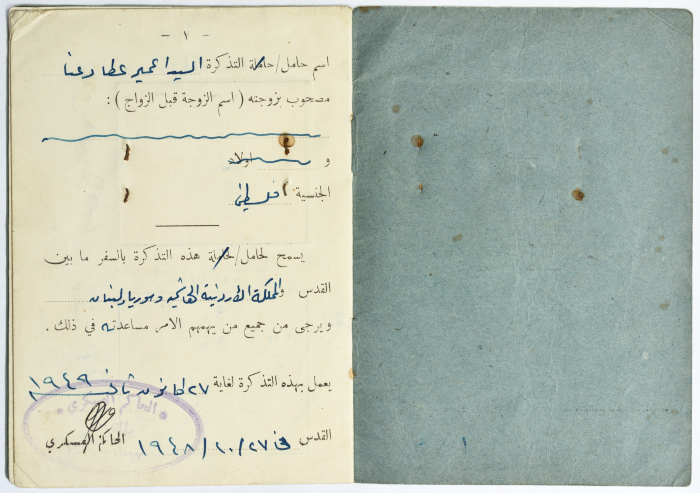 - ١ -
اسم حامل/حاملة التذكرة السيد اعمير عطا دعنا
مصحوب بزوجته ( اسم الزوجة قبل الزواج ) :
و اولاد
الجنسية فلسطيني
يسمح لحامل/حاملة هذه التذكرة بالسفر ما بين
القدس والمملكة الاردنية الهاشمية وسوريا ولبنان
ويرجى من جميع من يهمهم الامر مساعدته في ذلك .
يعمل بهذه التذكرة لغاية ٢٧ كانون ثاني ١٩٤٩
الحاكم العسكري
القدس في ٢٧/١٠/١٩٤٨ الحاكم العسكري